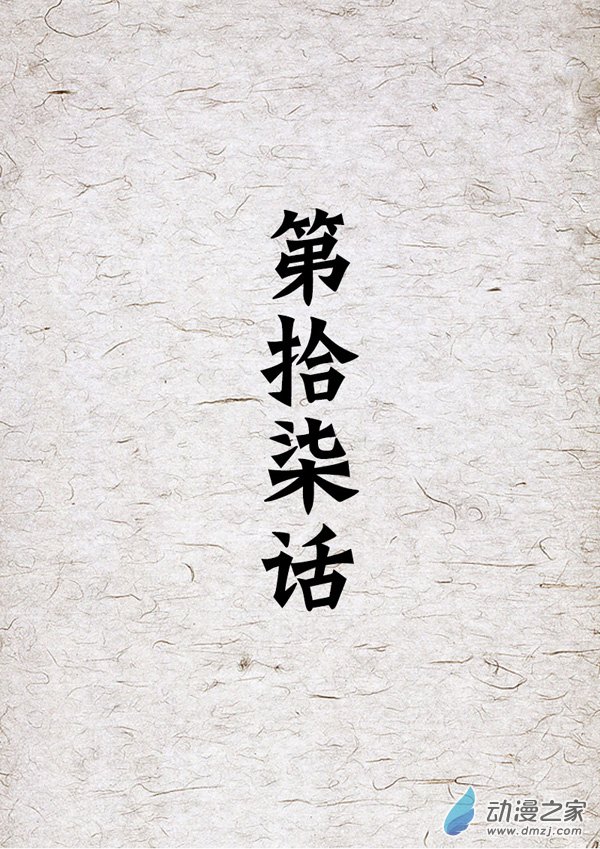 第拾柒话
动漫之家
www.dmzj.com